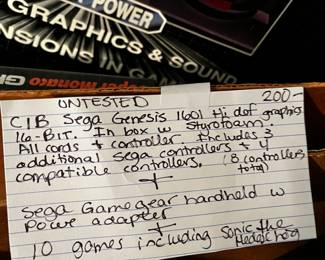 POWER
GRAPHICS & SOUND
NSIONS IN GAM
Super Monaco G
UNTESTED 200-
CIB Sega Genesis 1601 Hi def graphics
16-BIT. In box w Styrofoam.
All cords + controller. Includes 3
additional Sega controllers + 4
compatible controllers. (8 controllers
total)
+
Sega Gamegear handheld w
Power adapter
+
10 games including Sonic the
Hedgehog